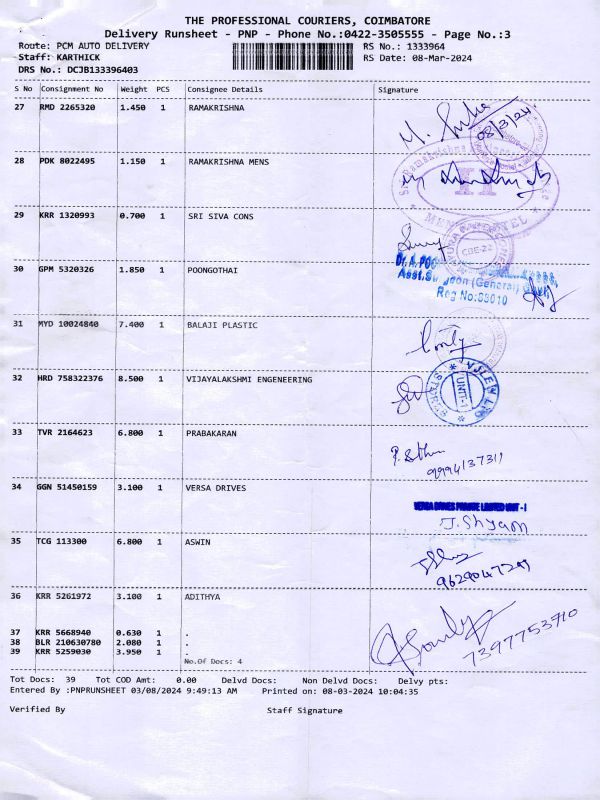 THE PROFESSIONAL COURIERS, COIMBATORE
Delivery Runsheet - PNP - Phone No.:0422-3505555 - Page No.:3
Route: PCM AUTO DELIVERY RS No.: 1333964
Staff: KARTHICK RS Date: 08-Mar-2024
DRS No.: DCJB133396403
S No Consignment No Weight PCS Consignee Details Signature
27 RMD 2265320 1.450 1 RAMAKRISHNA
08/3/24
28 PDK 8022495 1.150 1 RAMAKRISHNA MENS
29 KRR 1320993 0.700 1 SRI SIVA CONS
CBE-22
30 GPM 5320326 1.850 1 POONGOTHAI
Asst.Surgeon (General)
Reg No:88010
31 MYD 10024840 7.400 1 BALAJI PLASTIC
32 HRD 758322376 8.500 1 VIJAYALAKSHMI ENGENEERING
UNIT-1
33 TVR 2164623 6.800 1 PRABAKARAN
9994137311
34 GGN 51450159 3.100 1 VERSA DRIVES
VERSA DRIVES PRIVATE LIMITED UNIT - I
J.Shyam
35 TCG 113300 6.800 1 ASWIN
36 KRR 5261972 3.100 1 ADITHYA
7397753910
37 KRR 5668940 0.630 1 .
38 BLR 210630780 2.080 1 .
39 KRR 5259030 3.950 1 .
No.Of Docs: 4
Tot Docs: 39 Tot COD Amt: 0.00 Delvd Docs: Non Delvd Docs: Delvy pts:
Entered By :PNPRUNSHEET 03/08/2024 9:49:13 AM Printed on: 08-03-2024 10:04:35
Verified By Staff Signature